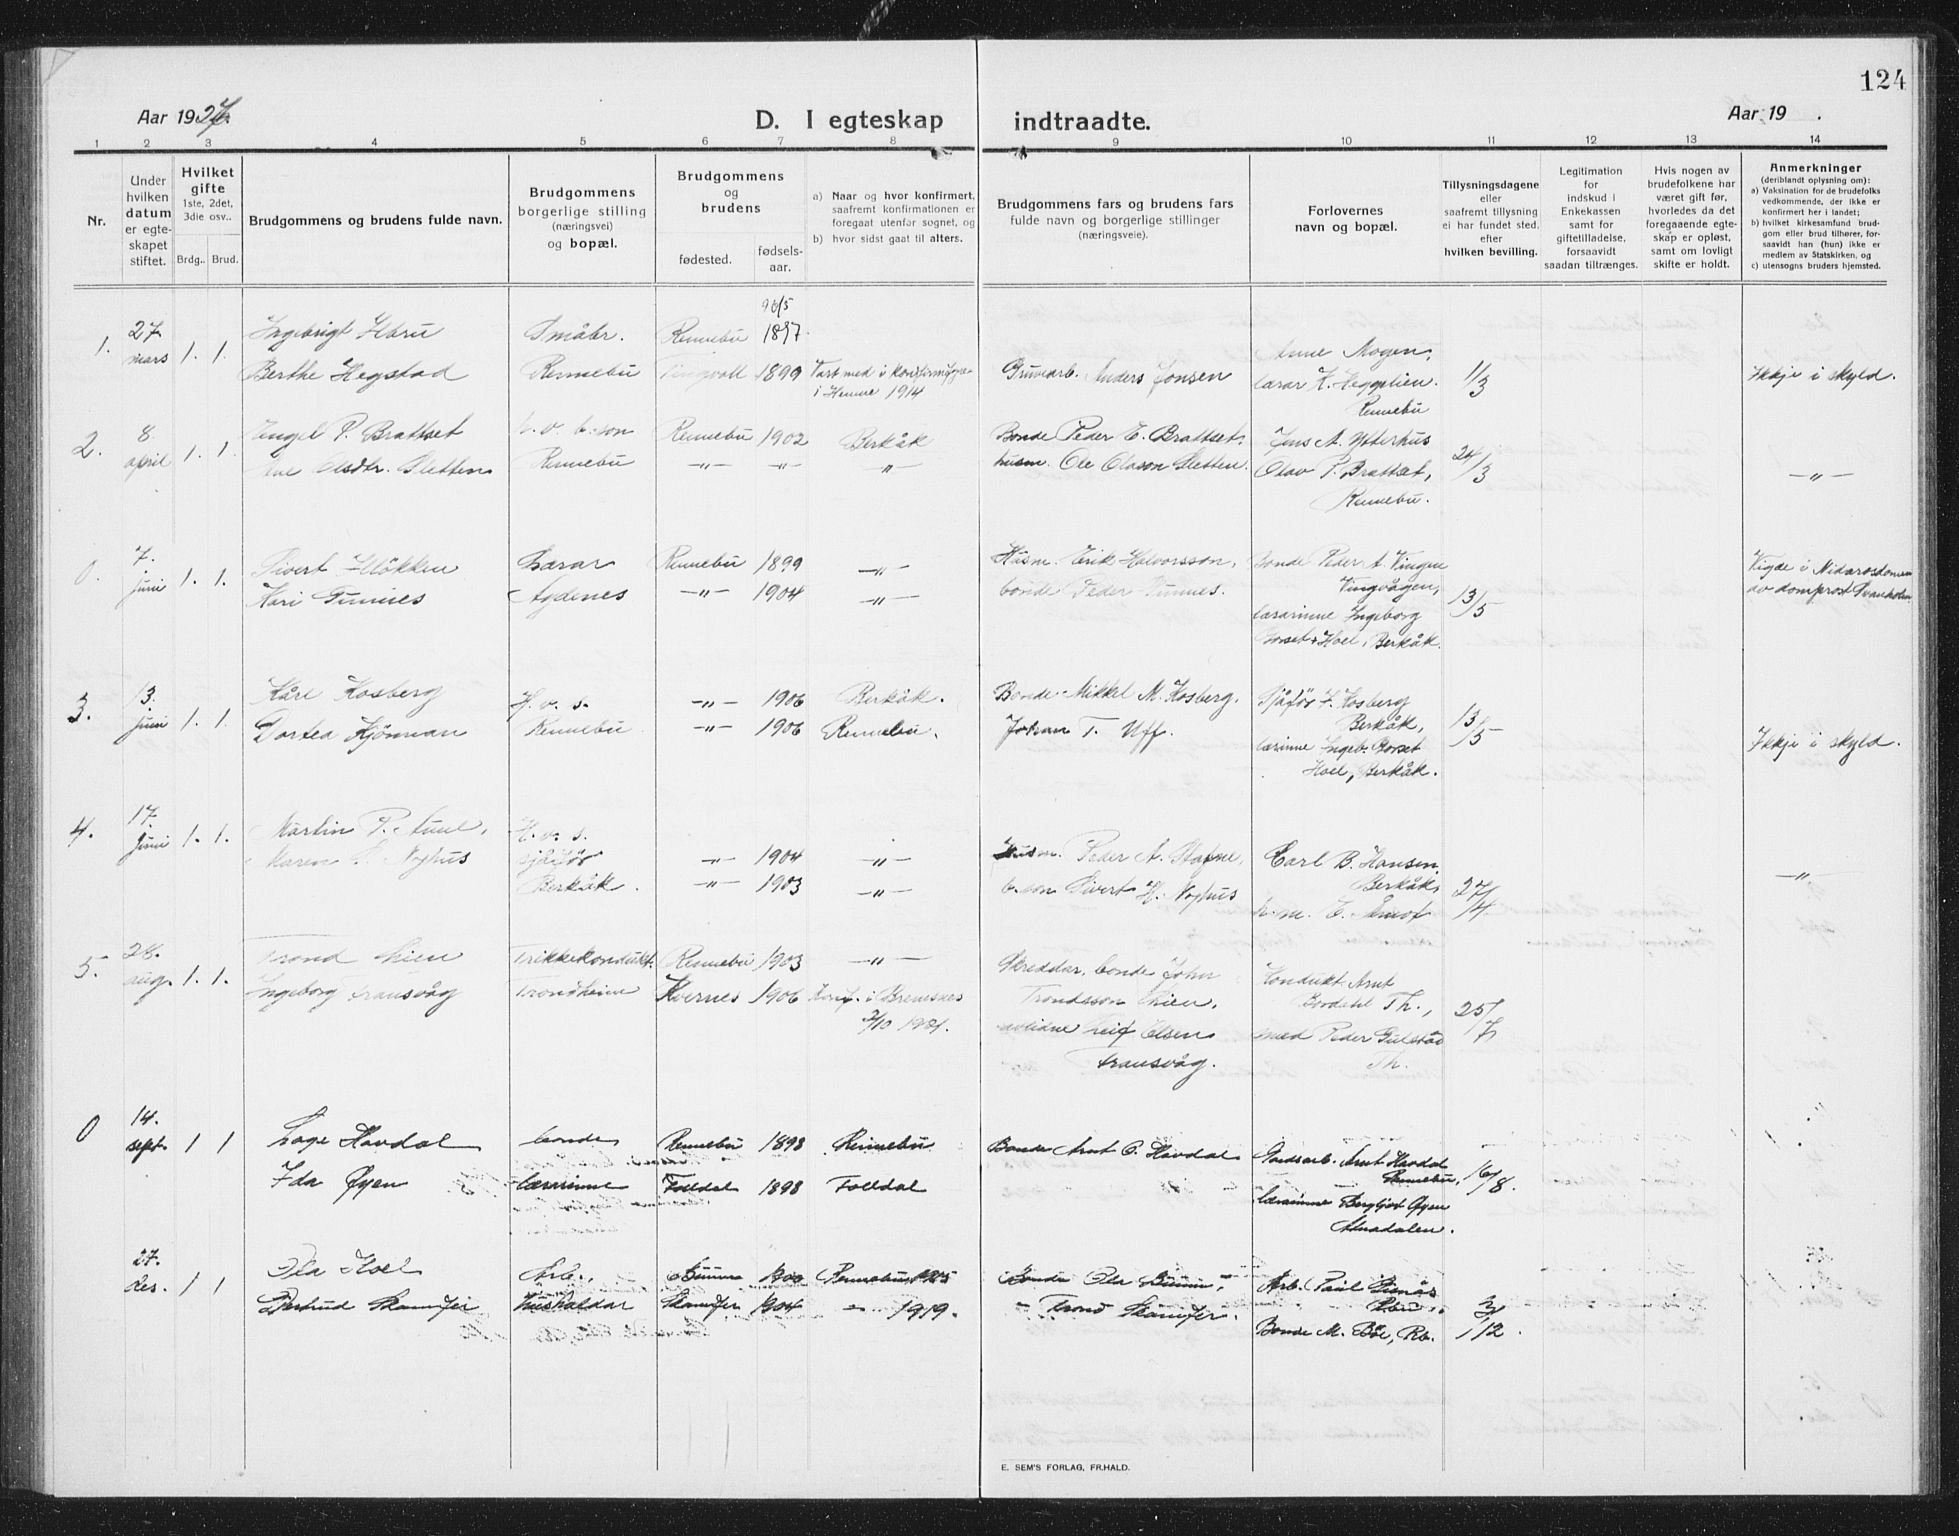 124
Aar 1927.
D. I egteskap
indtraadte.
Aar 19 .
1 2 3 4 5 6 7 8 9 10 11 12 13 14
Nr.
Under
hvilken
datum
er egte-
skapet
stiftet.
Hvilket
gifte
1ste, 2det,
3die osv..
Brdg.. Brud.
Brudgommens og brudens fulde navn.
Brudgommens
borgerlige stilling
(næringsvei)
og bopæl.
Brudgommens
og
brudens
fødested.
fødsels-
aar.
a) Naar og hvor konfirmert,
saafremt konfirmationen er
foregaat utenfor sognet, og
b) hvor sidst gaat til alters.
Brudgommens fars og brudens fars
fulde navn og borgerlige stillinger
(næringsveie).
Forlovernes
navn og bopæl.
Tillysningsdagene
eller
saafremt tillysning
ei har fundet sted.
efter
hvilken bevilling.
Legitimation
for
indskud i
Enkekassen
samt for
giftetilladelse,
forsaavidt
saadan tiltrænges.
Hvis nogen av
brudefolkene har
været gift før,
hvorledes da det
foregaaende egte-
skap er opløst,
samt om lovligt
skifte er holdt.
Anmerkninger
(deriblandt oplysning om):
a) Vaksination for de brudefolks
vedkommende, der ikke er
konfirmert her i landet;
b) hvilket kirkesamfund brud-
gom eller brud tilhører, for-
saavidt han (hun) ikke er
medlem av Statskirken, og
c) utensogns bruders hjemsted.
1. 27. mars 1. 1.
Ingebrigt
Berthe Hegstad
Småbr.
Rennebu
Rennebu 1897
Tingvoll 1899
i Hemne 1914
Gruvearb. Anders Jonsen
Arne Mogen,
lærar K. Heggelien.
Rennebu
1/3
Ikkje i skyld.
2. 8. april 1. 1.
Engel P. Brattset
Olsdtr. Sletten
Rennebu
Rennebu 1902 Berkåk
-"- -"- "
Bonde Peder E. Brattset.
husm. Ole Olason Sletten.
Jens A. Ytterhus
Olav P. Brattset,
Rennebu.
24/3
-"-
0. 7. juni 1. 1.
Sivert
Kari Gunnes
Lærar
Agdenes
Rennebu 1899 -"-
-"- 1904 -"-
Husm. Erik Halvorsson,
bonde Peder Gunnes.
bonde Peder A. Vingen
Vingvågen,
lærarinne Ingeborg
Hoel, Berkåk.
13/5
Vigde i Nidarosdomen
av domprost
3. 13. juni 1. 1.
Kåre Kosberg
Dortea
H. v. s.
Rennebu
-"- 1906 Berkåk.
-"- 1906 Rennebu.
Bonde Mikkel M. Kosberg.
Johan T. Uff.
Sjåfør J. Kosberg
Berkåk,
lærinne Ingeb. Borset
Hoel, Berkåk.
13/5
Ikkje i skyld.
4. 17. juni 1. 1.
Martin P.
Maren S. Nyhus
H. v. s.
sjåfør
Berkåk.
-"- 1904 -"-
-"- 1903 -"-
Husm. Peder A. Stafne,
b.son Sivert H. Nyhus
Carl B. Hansen,
Berkåk,
27/4
-"-
5. 28. aug. 1. 1.
Trond Lien
Ingeborg
Trikkekondukt.
Trondheim
Rennebu 1903 -"-
Kvernes 1906 Konf. i Bremsnes
Skreddar, bonde John
Trondsson Lien.
avlidne Leif Olsen
Kondukt. Arnt
Th.,
med Peder
Th.
25/7
0 14. sept. 1 1
Lage Havdal
Ida Øyen
bonde
lærarinne
Rennebu 1898 Rennebu
Folldal 1898 Folldal
Bonde Arnt O. Havdal
Gardsarb. Arnt Havdal
Rennebu,
lærarinne Bergljot Øyen
Atnadalen.
16/8.
27. des. 1 1
Ola Hoel
Gjertrud Skamfer
Arb.
husholdar
1900 Rennebu 1915
Skamfer 1904 -"- 1919.
-"- Trond Skamfer.
Arb. Paul
Bonde M. Bøe, Rb.
3/12.
E. SEM'S FORLAG, FR.HALD.